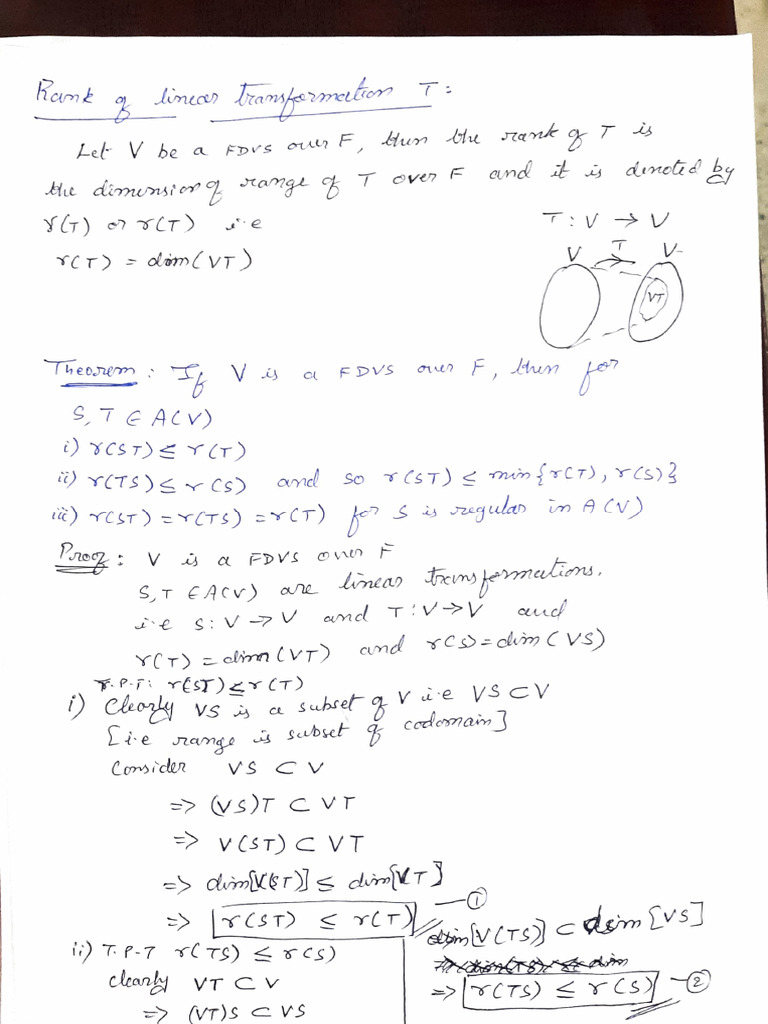 Rank of linear transformation T:
Let V be a FDVS over F, then the rank of T is
the dimension of range of T over F and it is denoted by
γ(T) or r(T) i.e
r(T) = dim(VT)
T : V → V
V T V
VT
Theorem: If V is a FDVS over F, then for
S, T ∈ A(V)
i) r(ST) ≤ r(T)
ii) r(TS) ≤ r(S) and so r(ST) ≤ min{r(T), r(S)}
iii) r(ST) = r(TS) = r(T) for S is regular in A(V)
Proof: V is a FDVS over F
S, T ∈ A(V) are linear transformations.
i.e S : V → V and T : V → V and
r(T) = dim(VT) and r(S) = dim(VS)
T.P.T: r(ST) ≤ r(T)
i) Clearly VS is a subset of V i.e VS ⊂ V
[i.e range is subset of codomain]
Consider VS ⊂ V
⇒ (VS)T ⊂ VT
⇒ V(ST) ⊂ VT
⇒ dim[V(ST)] ≤ dim[VT]
⇒ r(ST) ≤ r(T) — ①
ii) T.P.T r(TS) ≤ r(S)
Clearly VT ⊂ V
⇒ (VT)S ⊂ VS
dim[V(TS)] ⊂ dim[VS]
⇒ r(TS) ≤ r(S) — ②